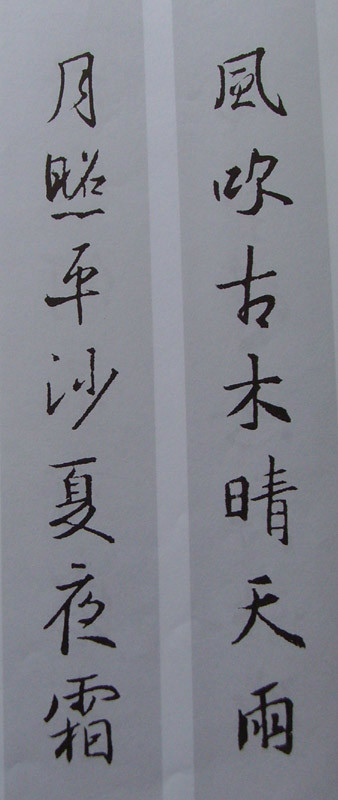 風吹古木晴天雨
月照平沙夏夜霜